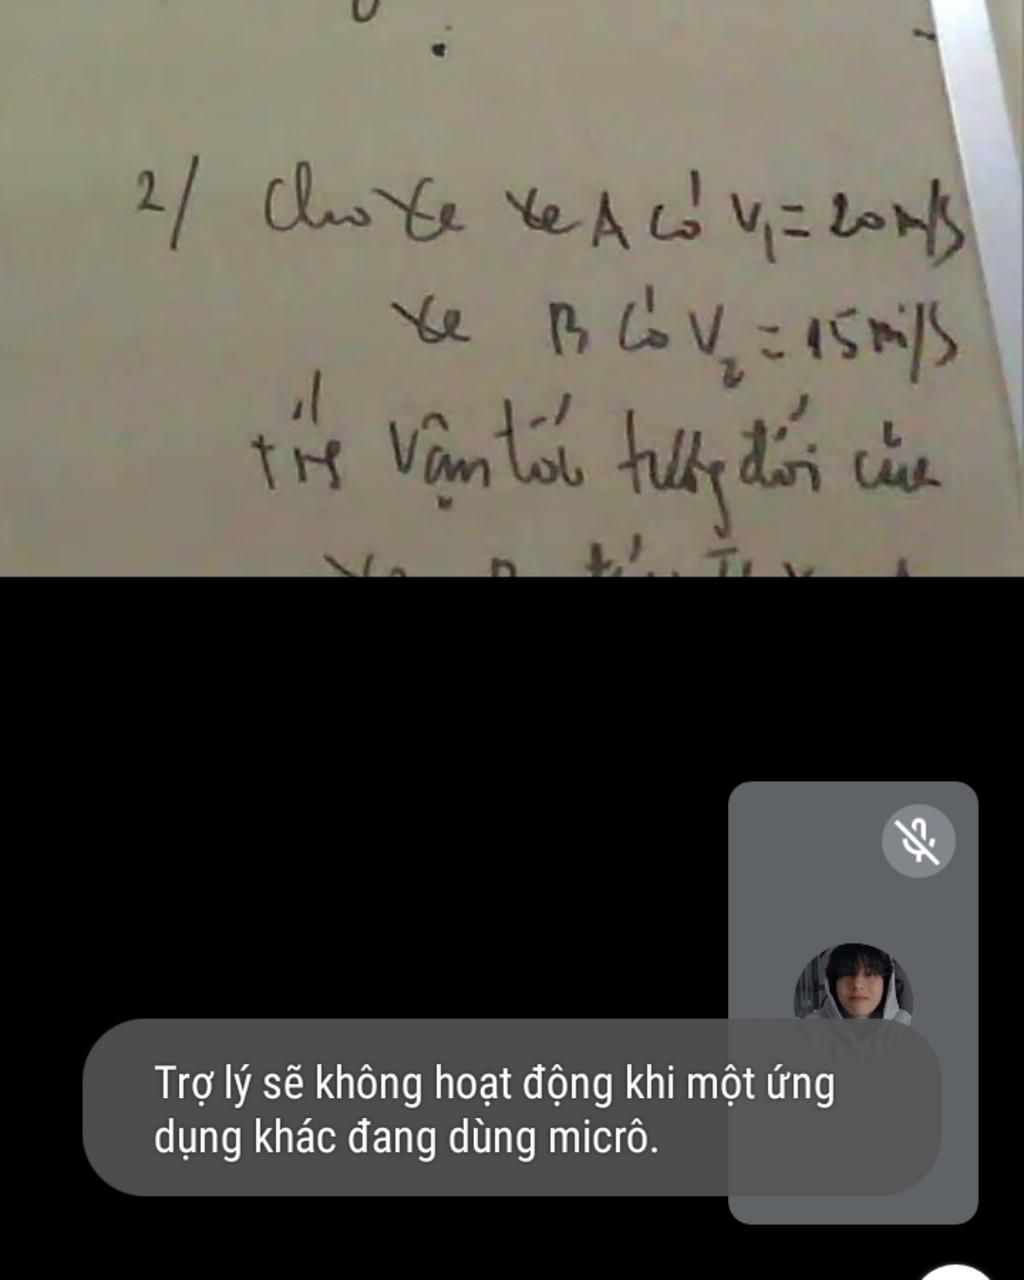 2/ Cho xe xe A có V₁ = 20 m/s
xe B có V₂ = 15 m/s
tính vận tốc tương đối của
Trợ lý sẽ không hoạt động khi một ứng
dụng khác đang dùng micrô.